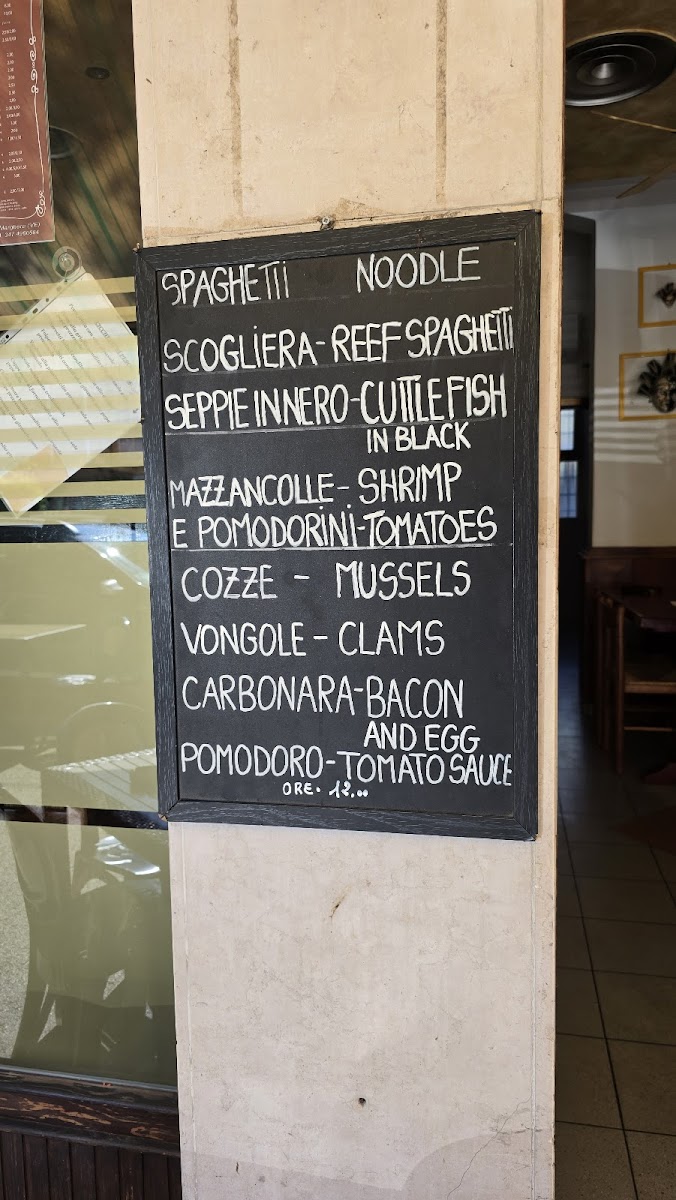 Marghera (VE)
SPAGHETTI NOODLE
SCOGLIERA-REEF SPAGHETTI
SEPPIE IN NERO-CUTTLEFISH
IN BLACK
MAZZANCOLLE-SHRIMP
E POMODORINI-TOMATOES
COZZE - MUSSELS
VONGOLE - CLAMS
CARBONARA-BACON
AND EGG
POMODORO-TOMATO SAUCE
ORE. 12.00